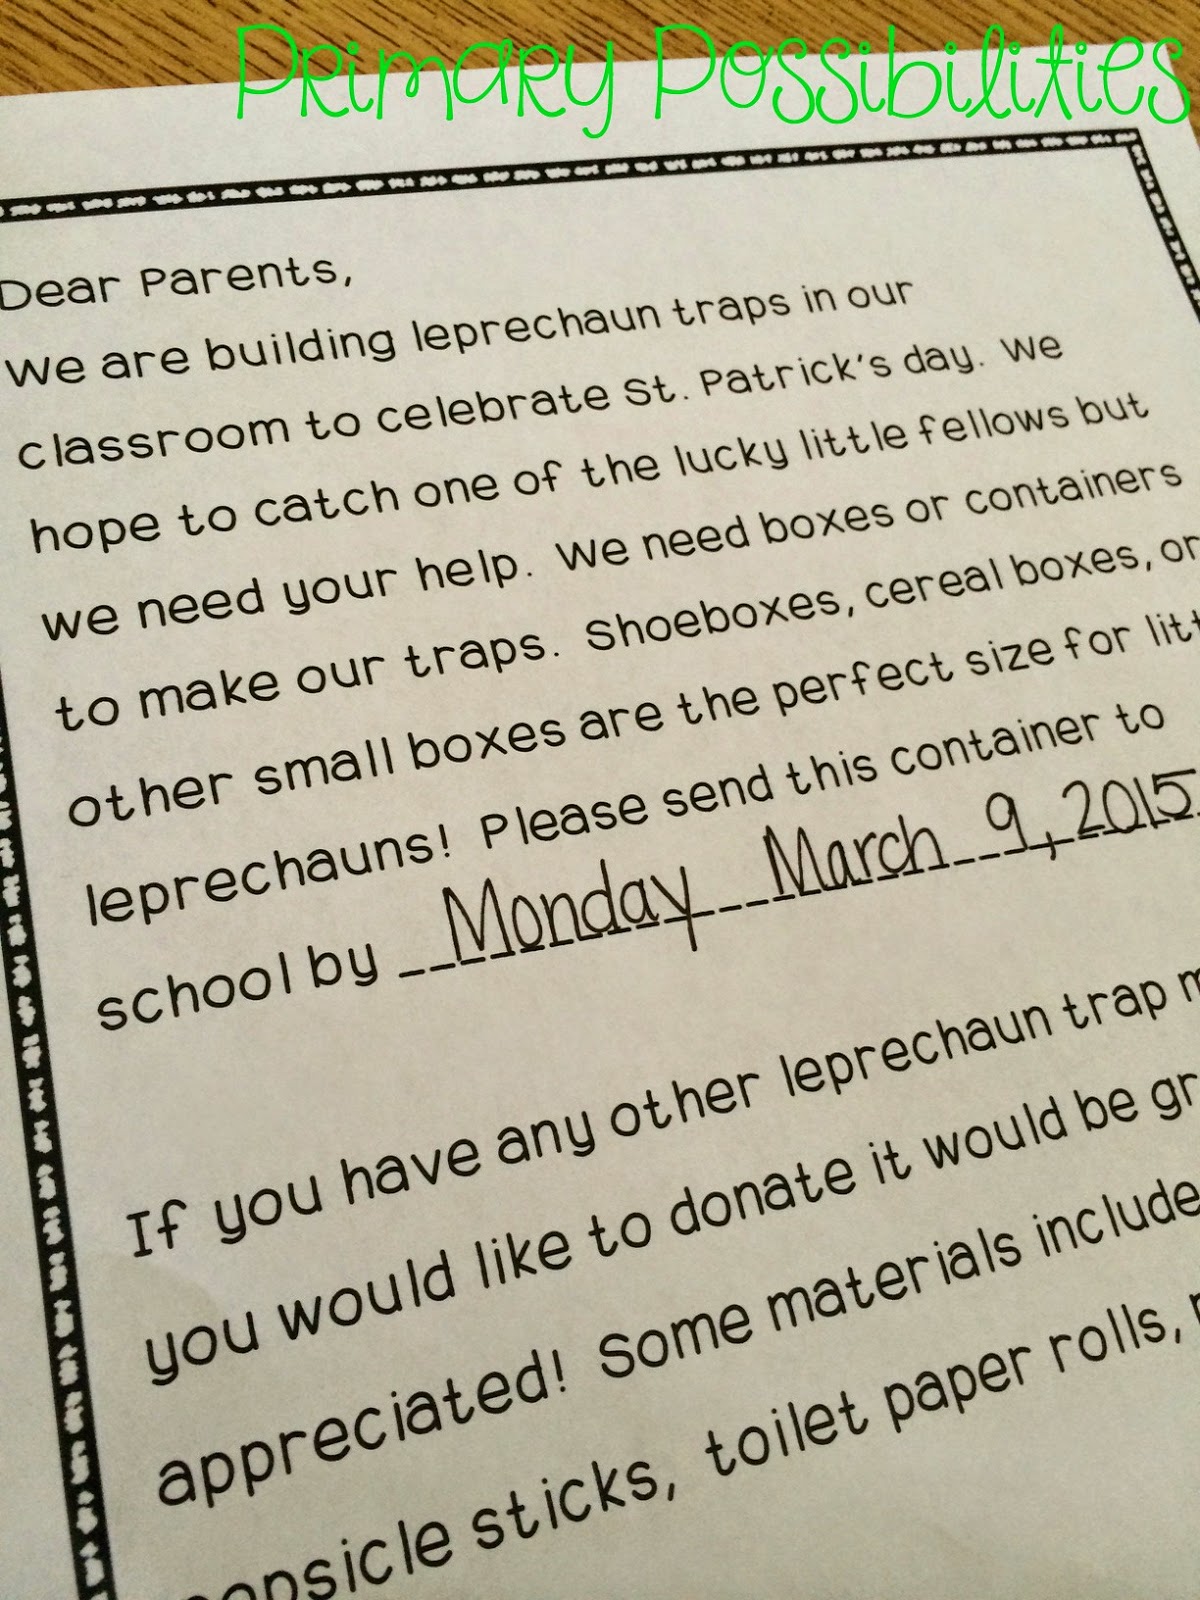 Primary Possibilities
Dear Parents,
We are building leprechaun traps in our
classroom to celebrate St. Patrick's day. We
hope to catch one of the lucky little fellows but
we need your help. We need boxes or containers
to make our traps. Shoeboxes, cereal boxes, or
other small boxes are the perfect size for
leprechauns! Please send this container to
school by Monday March 9, 2015
If you have any other leprechaun trap
you would like to donate it would be
appreciated! Some materials include
popsicle sticks, toilet paper rolls,